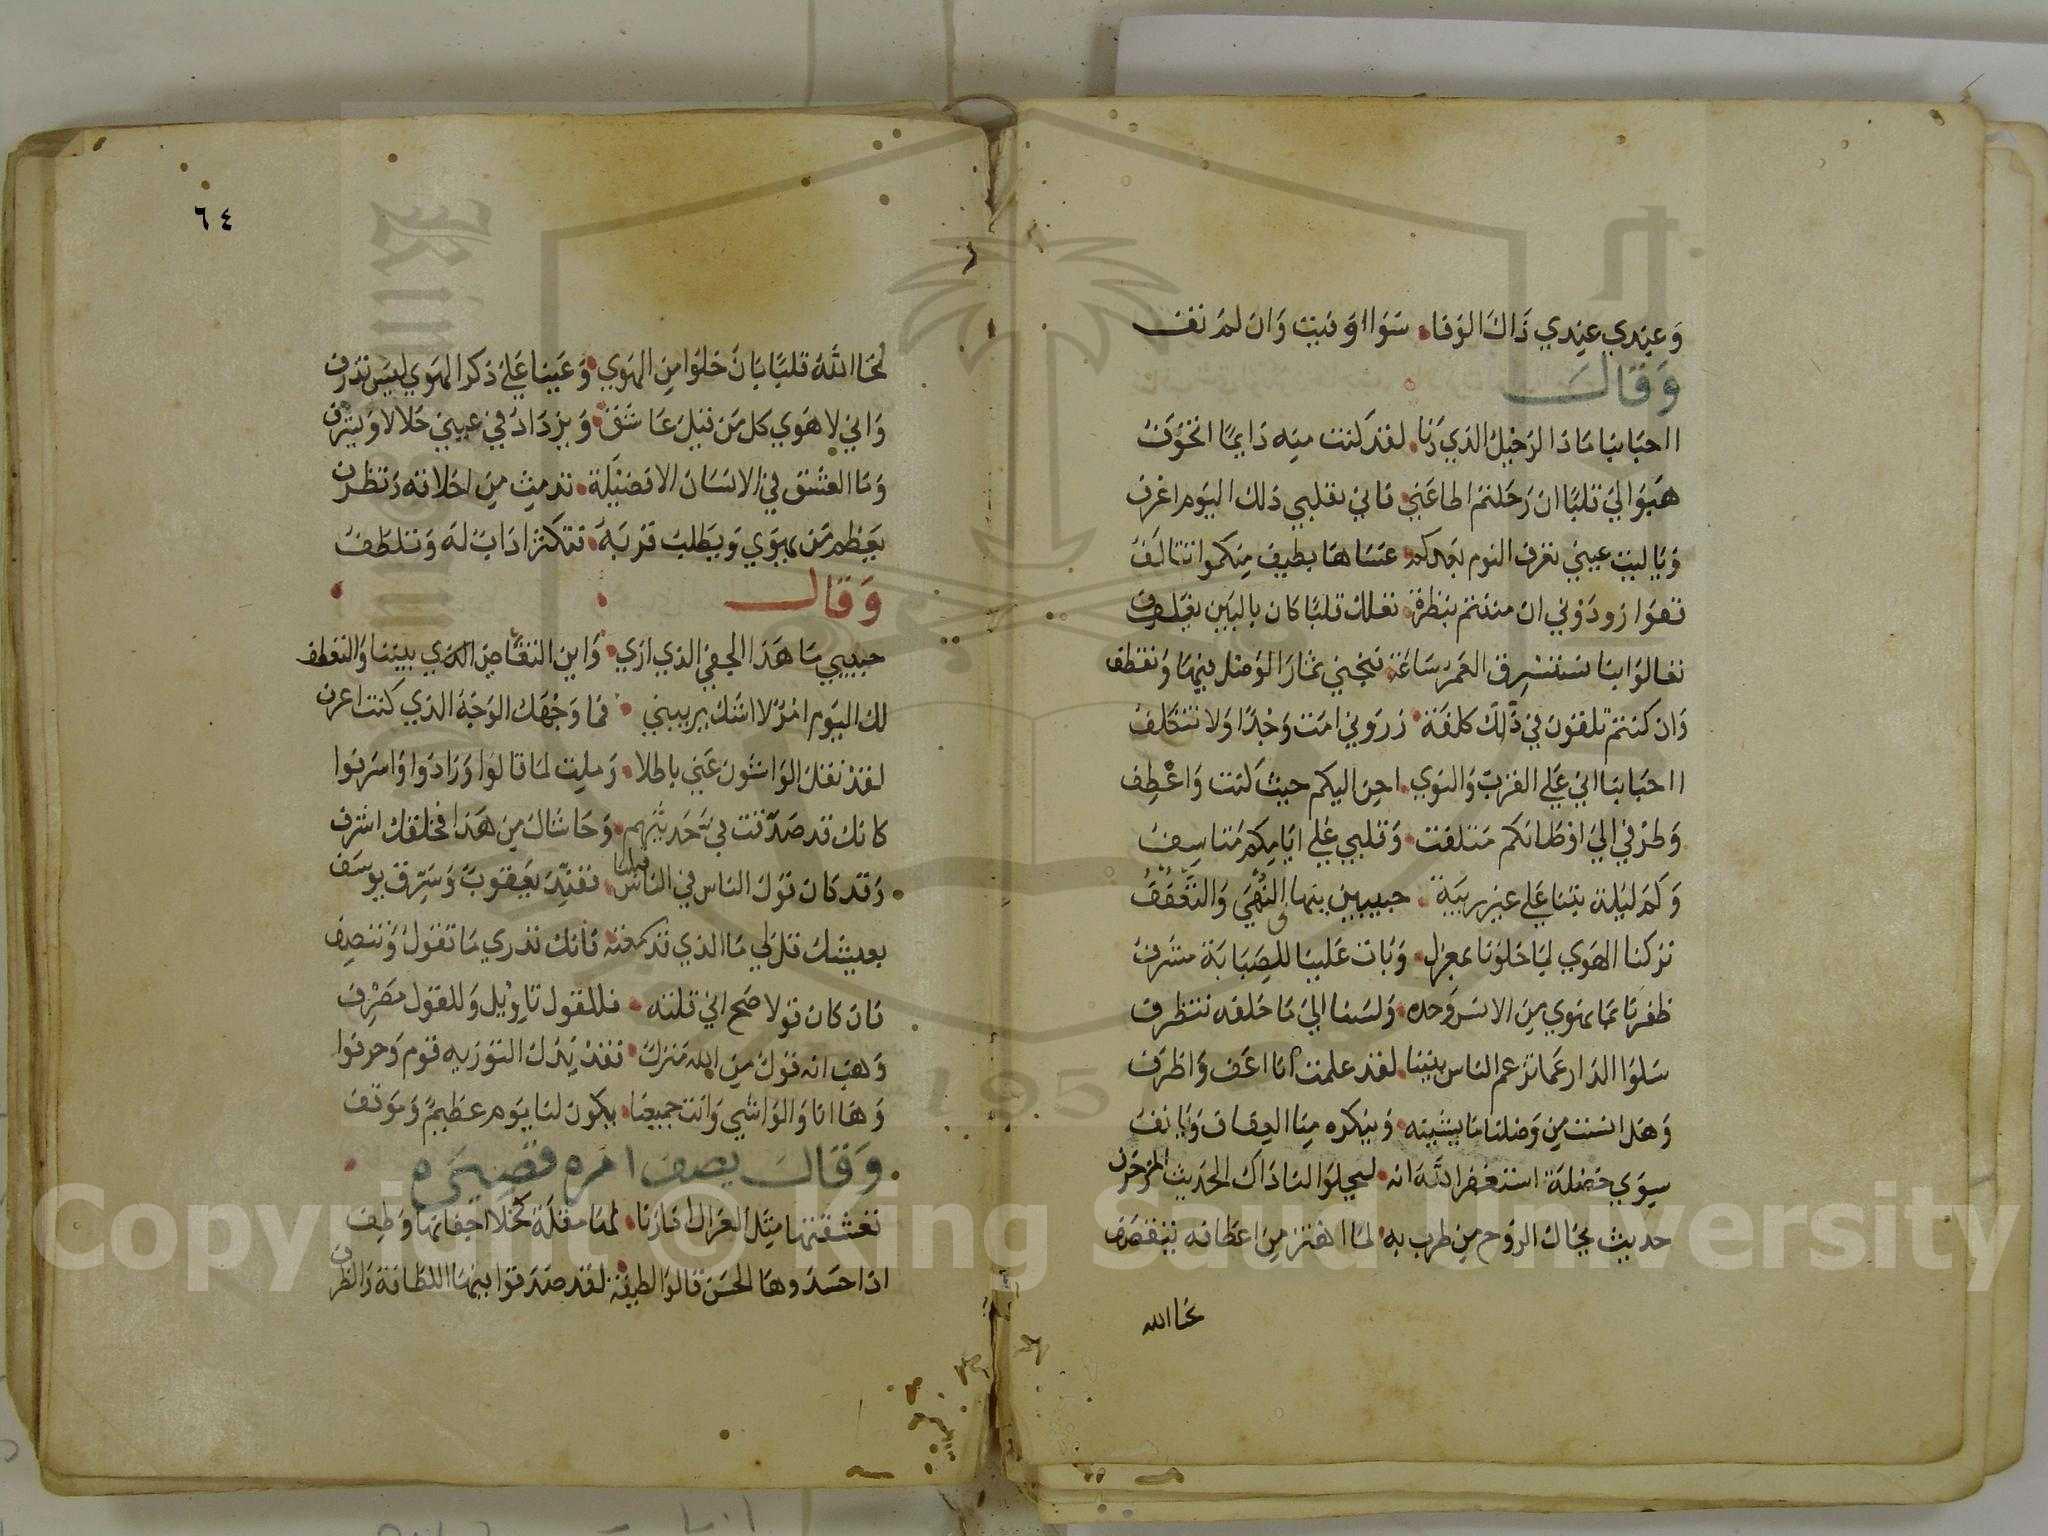 وَعِندي عِندي ذَاكَ الوَفا سَوَا اوفيت وَان لمْ تف
وَقَالَ
ااحبَابنا مَاذا الرَحيْل الذي دَنا لقد كنت منِه دَايمًا اتخوّفُ
هَبُوا لي قلبًا ان رَحَلتم اطاعَني فاني بقلبي ذلك اليَوم اعْرف
وَيا ليت عيني تعرف النوم بعدكم عسَاها بطيف مِنكموا تتالفُ
قفوا زودوْني ان مننتم بنظرة تعلل قلبًا كان بالبَين يتلف
تعالوا بنا نستسْرِق العمر ساعَة فنجني ثمارَ الوَصْل فيهَا وَنقطف
وَان كنتم تلقون في ذلِك كلفَة ذروني امت وَجْدًا وَلا تتكلفُ
ااحبَابنا اني عَلي القربْ وَالنوي احن اليكم حيث كنت وَاعْطِف
وَطرْفي الي اوْطانكم متلفت وَقلبي عَلي ايامِكم مُتاسِفُ
وَكمْ ليْلة بتنا عَلي غير ريبَة حبيبين ينهانا النُهَي وَالتَّعَفُّفُ
تركنا الهَوي لما خلوْنا بمعزل وَبات علينا للصَبَابَة مشرفُ
ظفرنا بما نهوي مِن الانس وَحده وَلسْنا الي مَا خلفه نتنظرف
سَلوا الدَار عَما تزعم الناس بيننا لقد علمت انا اعَف وَاظرَف
وَهَل انست مِن وَصْلنا ما يشينه وَينكره مِنا العِفاف وَيانفُ
سِوَي خصْلة استغفر اللَّه انه ليحلوا لنا ذَاك الحَديث المزخرَف
حديث يخال الروْح مِن طرب به لما اهتز مِن اعطافه يتقصَف
لحا الله
٦٤
لحَا اللَّه قلبًا بَانَ خلوًا مِن الهوي وَعَينا عَليْ ذكر الهوي ليس تذرف
وَاني لا هوَي كل مَن قيل عَاشق وَيزدَاد في عيني جلالا وَيشرف
وَمَا العشق في الانسان الا فضيْلة تدمث مِن اخلاقه وَتظرف
يعَظم مَن يهوَي وَيطلب قرْبَهَ فتكثر ادَاب له وَتلطفُ
وَقال
حبيبي مَا هَذا الجَفي الذي اري وَاين التغاضِي الذي بيننا وَالتعطف
لك اليَوم امْر لا اشك يريبني فما وَجْهك الوَجْه الذي كنت اعرف
لقدْ نقل الوَاشون عَني باطلا وَملت لما قالوا وَزادَوا وَاسرَفوا
كانك قد صَدّقت في حَديثهم وَحَاشاك مِن هَذا فخلقك اشرف
وَقد كان قول الناس في الناس قبلنا فقنِّد يَعقوبٌ وَسُرِّق يوسف
بعيشك قل لي مَا الذي قد سمعته فانك تدري مَا تقول وَتنصِف
فان كان قولا صَح اني قلته فللقول تاوِيْل وَللقول مَصْرِف
وَهبْ انه قول مِن الله منزل فقدْ بَدل التوْرَيه قوم وَحرفوا
وَهَا انا وَالوَاشي وَانت جميعنا يكون لنا يوم عظيم وَموقفُ
وَقَالَ يصف امرَه قصيَره
تعشقتها مِثل الغزال اذا رَنا لهَا مقلة كحَلا اجفانها وَطف
اذا حسَدوها الحسْن قالوا لطيفة لقد صدقوا فيهَا اللطافة وَالظرف